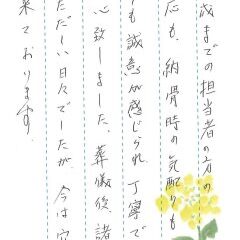 歳までの担当者の方の
応も、納骨時の気配りも
も誠意が感じられ、丁寧で
心致しました。葬儀後、諸
ただしい日々でしたが、今は穴
来ております。